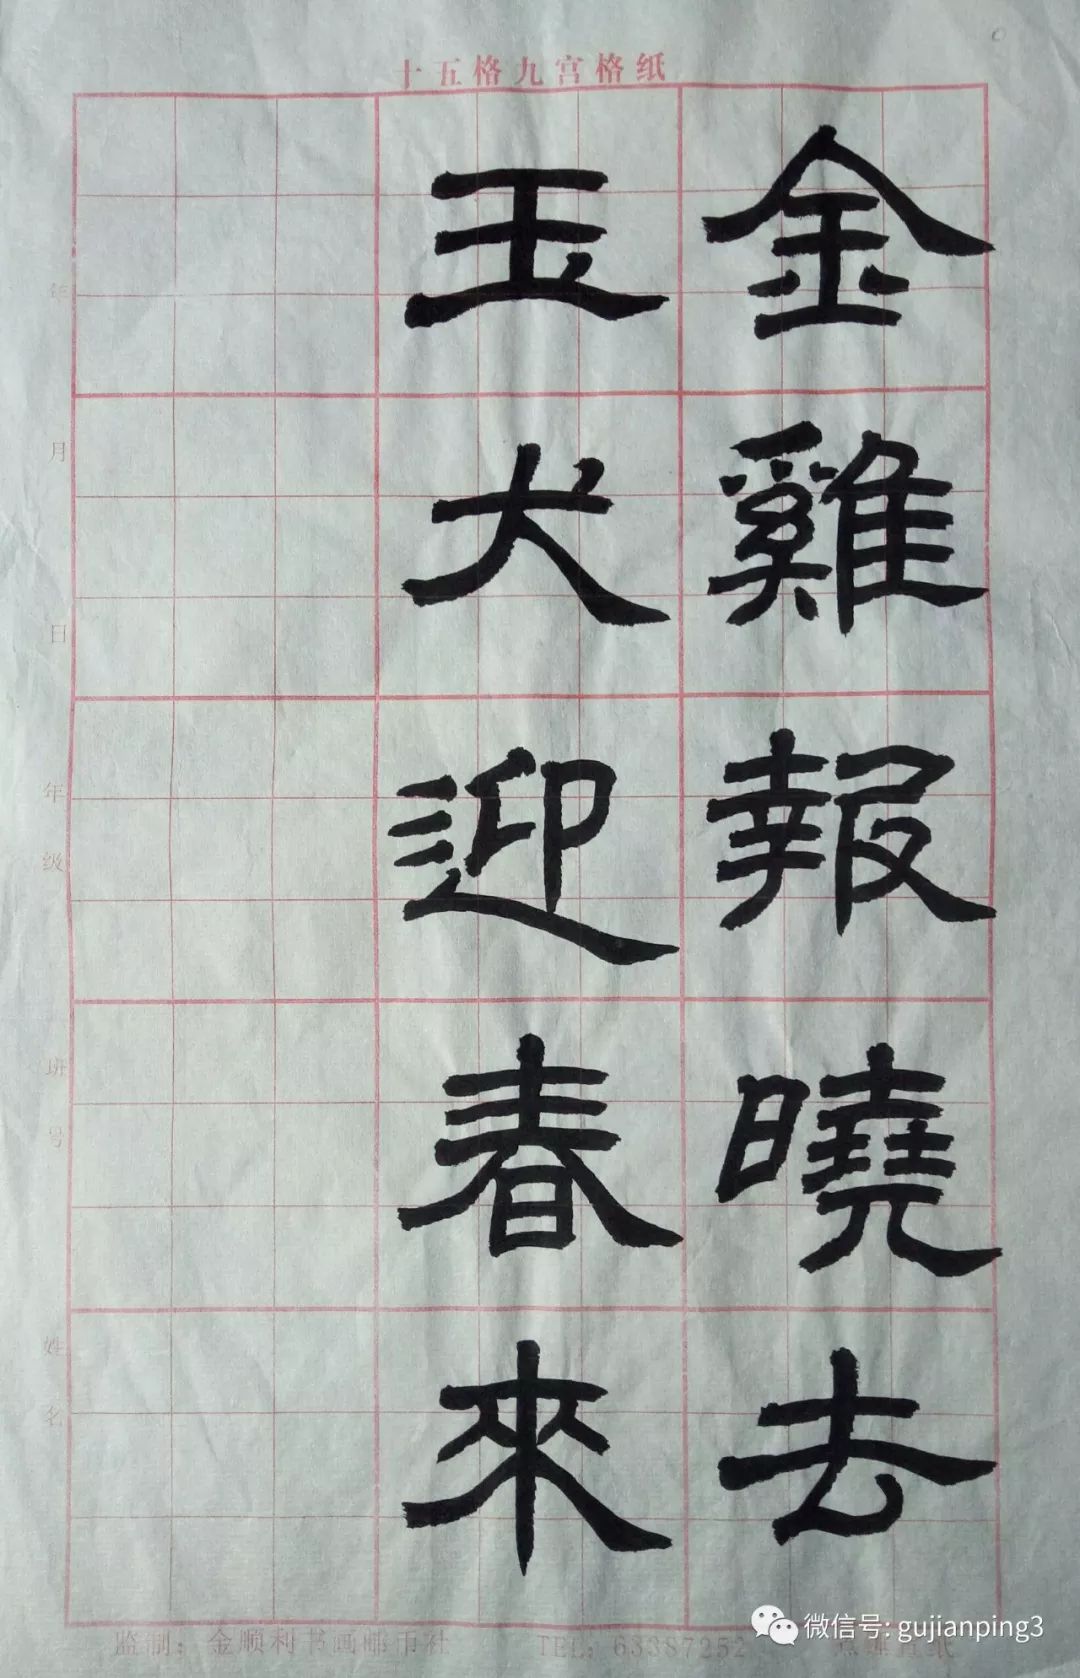 十五格九宫格纸
金雞報曉去
玉犬迎春來
年
月
日
年级
班号
姓名
监制：金顺利书画邮币社 TEL：63387252
微信号: gujianping3